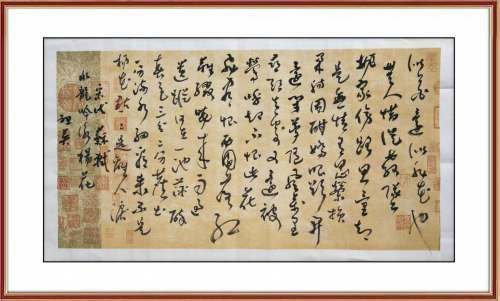 似花還似非花也
無人惜從教墜
抛家傍路思量却
是無情有思縈損
柔腸困酣嬌眼欲開
還閉夢隨風萬里
尋郎去處又還被
鶯呼起不恨此花
飛盡恨西園落紅
難綴曉來雨過
遺蹤何在一池萍碎
春色三分二分塵土
一分流水細看來不是
楊花點點是離人淚
宋代蘇軾
水龍吟詠楊花